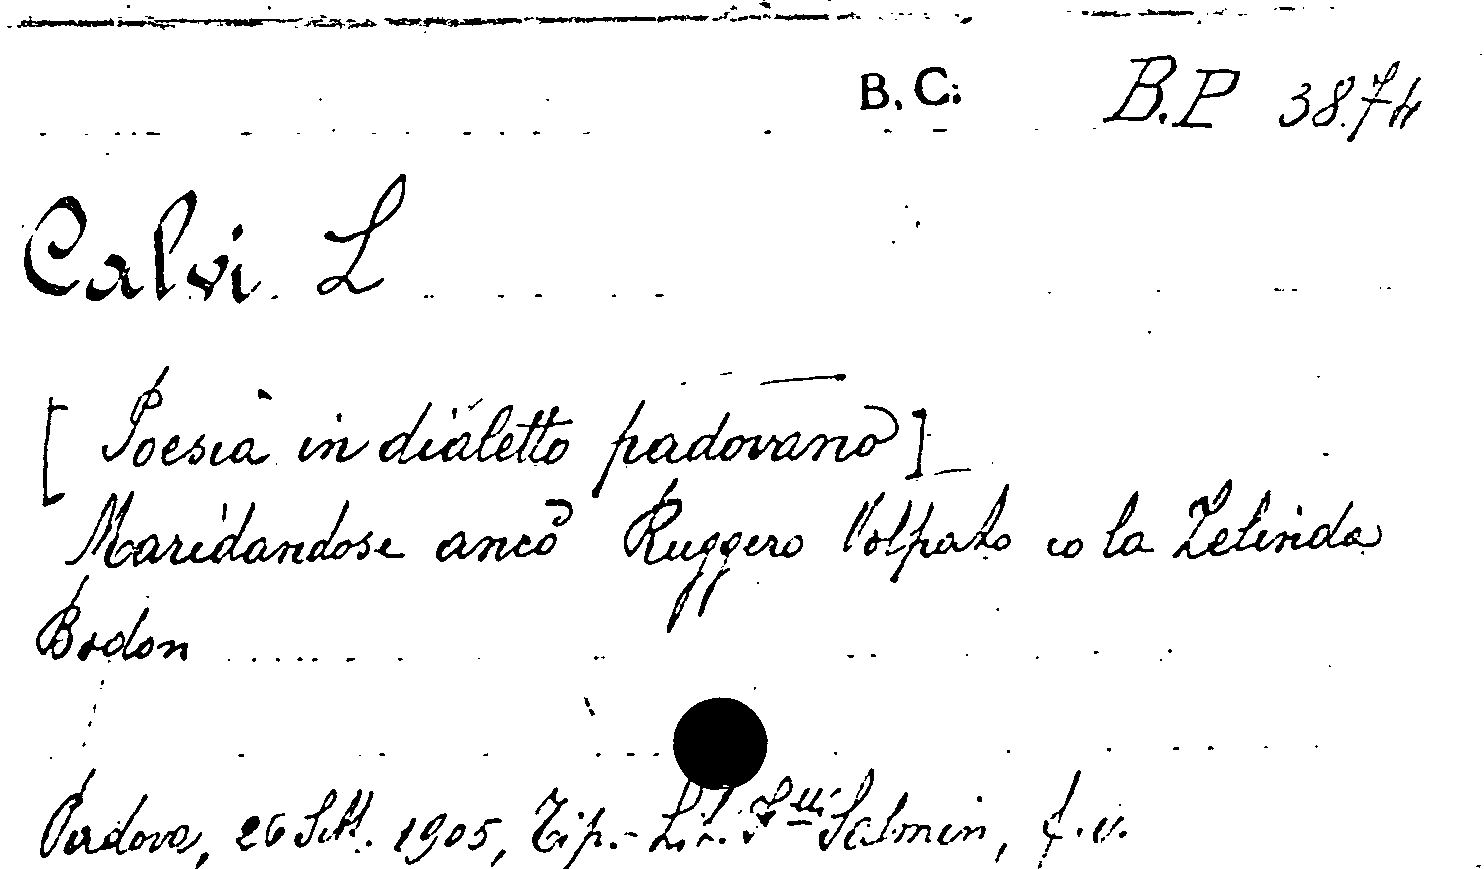 B.C. B.P 3874
Calvi L
[Poesia in dialetto padovano]
Maridandose ancò Ruggero Volpato co la Zelinda
Bodon
Padova, 26 Sett. 1905, Tip.-Lit. F.lli Salmin, f.v.